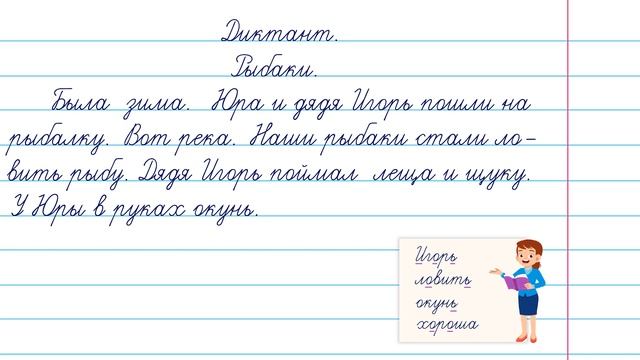 Диктант.
Рыбаки.
Была зима. Юра и дядя Игорь пошли на
рыбалку. Вот река. Наши рыбаки стали ло-
вить рыбу. Дядя Игорь поймал леща и щуку.
У Юры в руках окунь.
Игорь
ловить
окунь
хороша